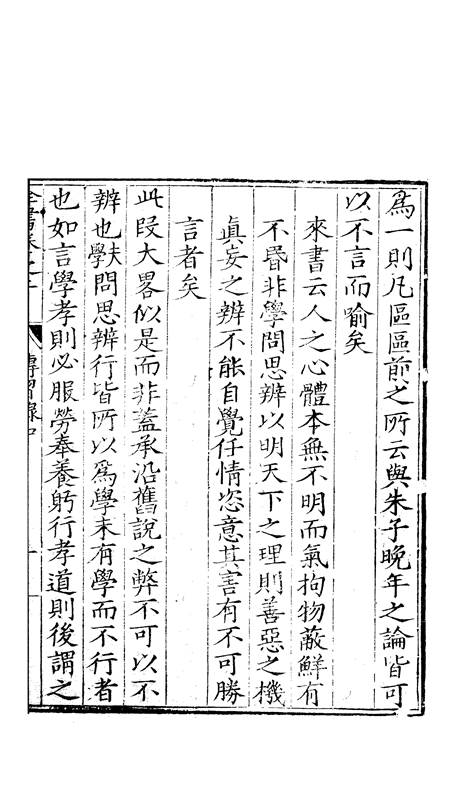 爲一則凡區區前之所云與朱子晚年之論皆可
以不言而喻矣
來書云人之心體本無不明而氣拘物蔽鮮有
不昬非學問思辨以明天下之理則善惡之機
眞妄之辨不能自覺任情恣意其害有不可勝
言者矣
此段大畧似是而非葢承沿舊說之弊不可以不
辨也夫學問思辨行皆所以爲學未有學而不行者
也如言學孝則必服勞奉養躬行孝道則後謂之